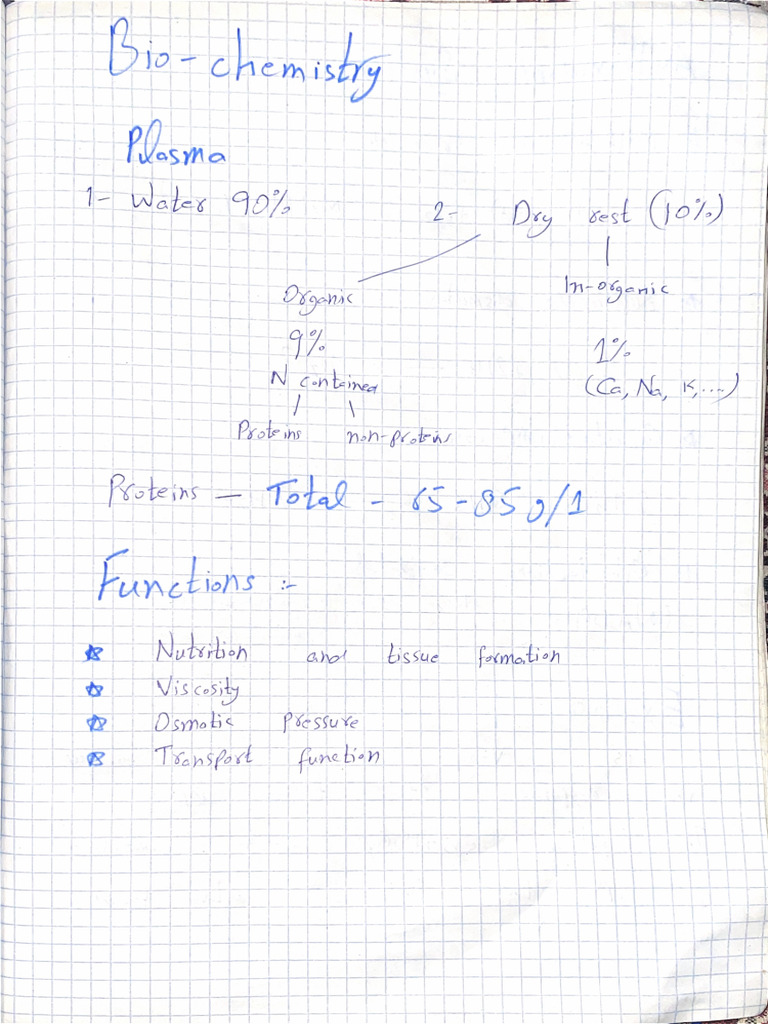 Bio-chemistry
Plasma
1- Water 90% 2- Dry rest (10%)
Organic In-organic
9% 1%
N contained (Ca, Na, K,....)
Proteins non-proteins
Proteins - Total - 65-85 g/l
Functions :-
☆ Nutrition and tissue formation
☆ Viscosity
☆ Osmotic pressure
☆ Transport function